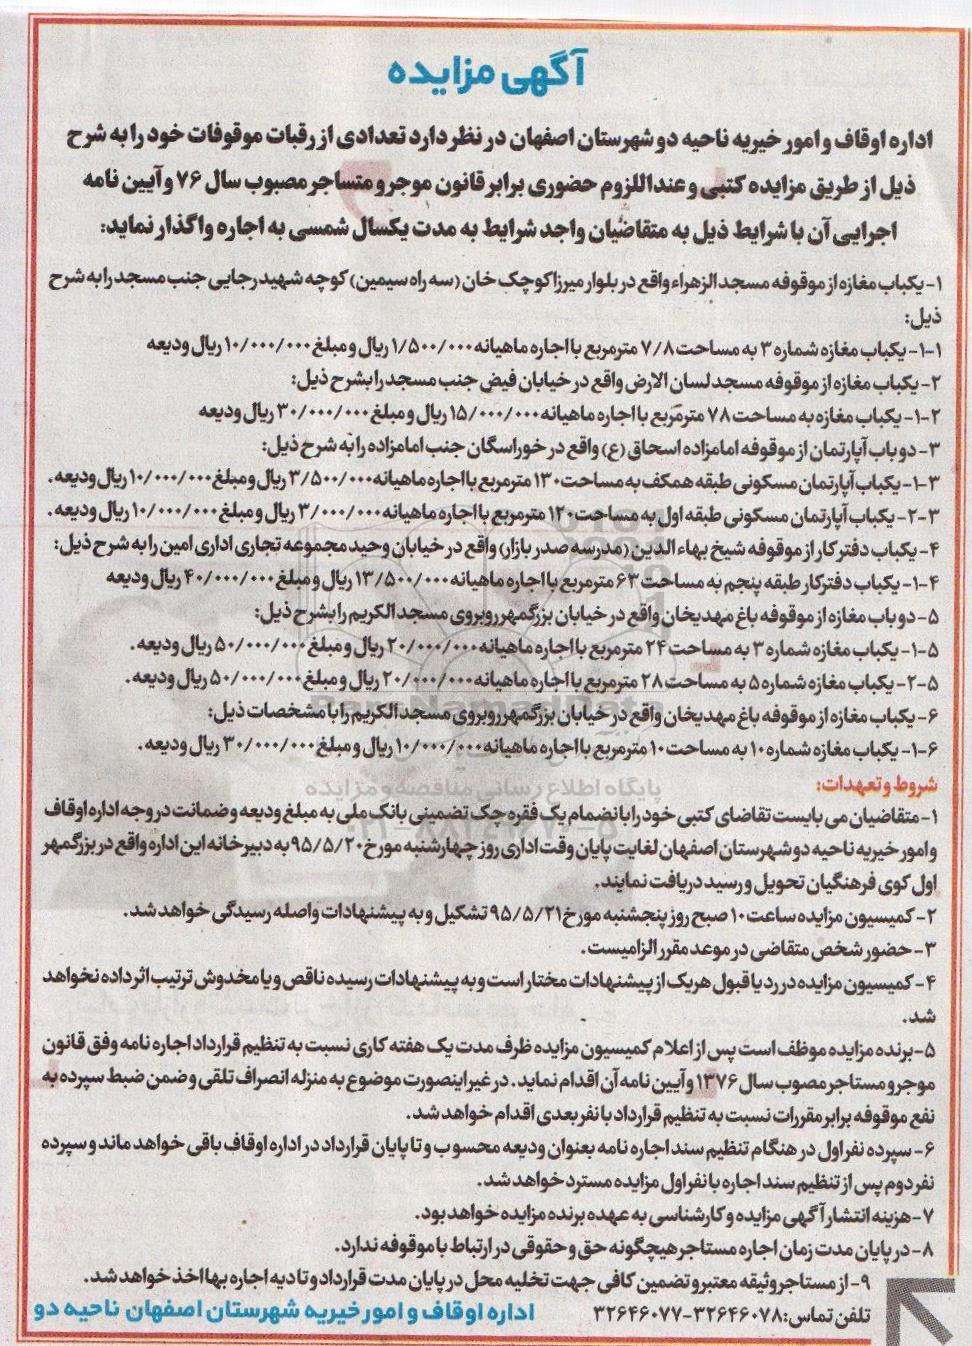 آگهی مزایده
اداره اوقاف و امور خیریه ناحیه دو شهرستان اصفهان در نظر دارد تعدادی از رقبات موقوفات خود را به شرح
ذیل از طریق مزایده کتبی و عنداللزوم حضوری برابر قانون موجر و متساجر مصبوب سال ۷۶ و آیین نامه
اجرایی آن با شرایط ذیل به متقاضیان واجد شرایط به مدت یکسال شمسی به اجاره واگذار نماید:
۱- یکباب مغازه از موقوفه مسجد الزهراء واقع در بلوار میرزا کوچک خان (سه راه سیمین) کوچه شهید رجایی جنب مسجد را به شرح
ذیل:
۱-۱- یکباب مغازه شماره ۳ به مساحت ۷/۸ مترمربع با اجاره ماهیانه ۱/۵۰۰/۰۰۰ ریال و مبلغ ۱۰/۰۰۰/۰۰۰ ریال ودیعه
۲- یکباب مغازه از موقوفه مسجد لسان الارض واقع در خیابان فیض جنب مسجد را بشرح ذیل:
۲-۱- یکباب مغازه به مساحت ۷۸ مترمربع با اجاره ماهیانه ۱۵/۰۰۰/۰۰۰ ریال و مبلغ ۳۰/۰۰۰/۰۰۰ ریال ودیعه
۳- دو باب آپارتمان از موقوفه امامزاده اسحاق (ع) واقع در خوراسگان جنب امامزاده را به شرح ذیل:
۳-۱- یکباب آپارتمان مسکونی طبقه همکف به مساحت ۱۳۰ مترمربع با اجاره ماهیانه ۳/۵۰۰/۰۰۰ ریال و مبلغ ۱۰/۰۰۰/۰۰۰ ریال ودیعه.
۳-۲- یکباب آپارتمان مسکونی طبقه اول به مساحت ۱۲۰ مترمربع با اجاره ماهیانه ۳/۰۰۰/۰۰۰ ریال و مبلغ ۱۰/۰۰۰/۰۰۰ ریال ودیعه.
۴- یکباب دفتر کار از موقوفه شیخ بهاء الدین (مدرسه صدر بازار) واقع در خیابان وحید مجموعه تجاری اداری امین را به شرح ذیل:
۴-۱- یکباب دفترکار طبقه پنجم به مساحت ۶۳ مترمربع با اجاره ماهیانه ۱۳/۵۰۰/۰۰۰ ریال و مبلغ ۴۰/۰۰۰/۰۰۰ ریال ودیعه
۵- دو باب مغازه از موقوفه باغ مهدیخان واقع در خیابان بزرگمهر روبروی مسجد الکریم را بشرح ذیل:
۵-۱- یکباب مغازه شماره ۳ به مساحت ۲۴ مترمربع با اجاره ماهیانه ۲۰/۰۰۰/۰۰۰ ریال و مبلغ ۵۰/۰۰۰/۰۰۰ ریال ودیعه.
۵-۲- یکباب مغازه شماره ۵ به مساحت ۲۸ مترمربع با اجاره ماهیانه ۲۰/۰۰۰/۰۰۰ ریال و مبلغ ۵۰/۰۰۰/۰۰۰ ریال ودیعه.
۶- یکباب مغازه از موقوفه باغ مهدیخان واقع در خیابان بزرگمهر روبروی مسجد الکریم را با مشخصات ذیل:
۶-۱- یکباب مغازه شماره ۱۰ به مساحت ۱۰ مترمربع با اجاره ماهیانه ۱۰/۰۰۰/۰۰۰ ریال و مبلغ ۳۰/۰۰۰/۰۰۰ ریال ودیعه.
پایگاه اطلاع رسانی مناقصه و مزایده
شروط و تعهدات:
۱- متقاضیان می بایست تقاضای کتبی خود را با نضمام یک فقره چک تضمینی بانک ملی به مبلغ ودیعه و ضمانت در وجه اداره اوقاف
و امور خیریه ناحیه دو شهرستان اصفهان لغایت پایان وقت اداری روز چهارشنبه مورخ ۹۵/۵/۲۰ به دبیرخانه این اداره واقع در بزرگمهر
اول کوی فرهنگیان تحویل و رسید دریافت نمایند.
۲- کمیسیون مزایده ساعت ۱۰ صبح روز پنجشنبه مورخ ۹۵/۵/۲۱ تشکیل و به پیشنهادات واصله رسیدگی خواهد شد.
۳- حضور شخص متقاضی در موعد مقرر الزامیست.
۴- کمیسیون مزایده در رد یا قبول هریک از پیشنهادات مختار است و به پیشنهادات رسیده ناقص و یا مخدوش ترتیب اثر داده نخواهد
شد.
۵- برنده مزایده موظف است پس از اعلام کمیسیون مزایده ظرف مدت یک هفته کاری نسبت به تنظیم قرارداد اجاره نامه وفق قانون
موجر و مستاجر مصوب سال ۱۳۷۶ و آیین نامه آن اقدام نماید. در غیر اینصورت موضوع به منزله انصراف تلقی و ضمن ضبط سپرده به
نفع موقوفه برابر مقررات نسبت به تنظیم قرارداد با نفر بعدی اقدام خواهد شد.
۶- سپرده نفر اول در هنگام تنظیم سند اجاره نامه بعنوان ودیعه محسوب و تا پایان قرارداد در اداره اوقاف باقی خواهد ماند و سپرده
نفر دوم پس از تنظیم سند اجاره با نفر اول مزایده مسترد خواهد شد.
۷- هزینه انتشار آگهی مزایده و کارشناسی به عهده برنده مزایده خواهد بود.
۸- در پایان مدت زمان اجاره مستاجر هیچگونه حق و حقوقی در ارتباط با موقوفه ندارد.
۹- از مستاجر وثیقه معتبر و تضمین کافی جهت تخلیه محل در پایان مدت قرارداد و تادیه اجاره بها اخذ خواهد شد.
تلفن تماس: ۳۲۶۴۶۰۷۸-۳۲۶۴۶۰۷۷
اداره اوقاف و امور خیریه شهرستان اصفهان ناحیه دو